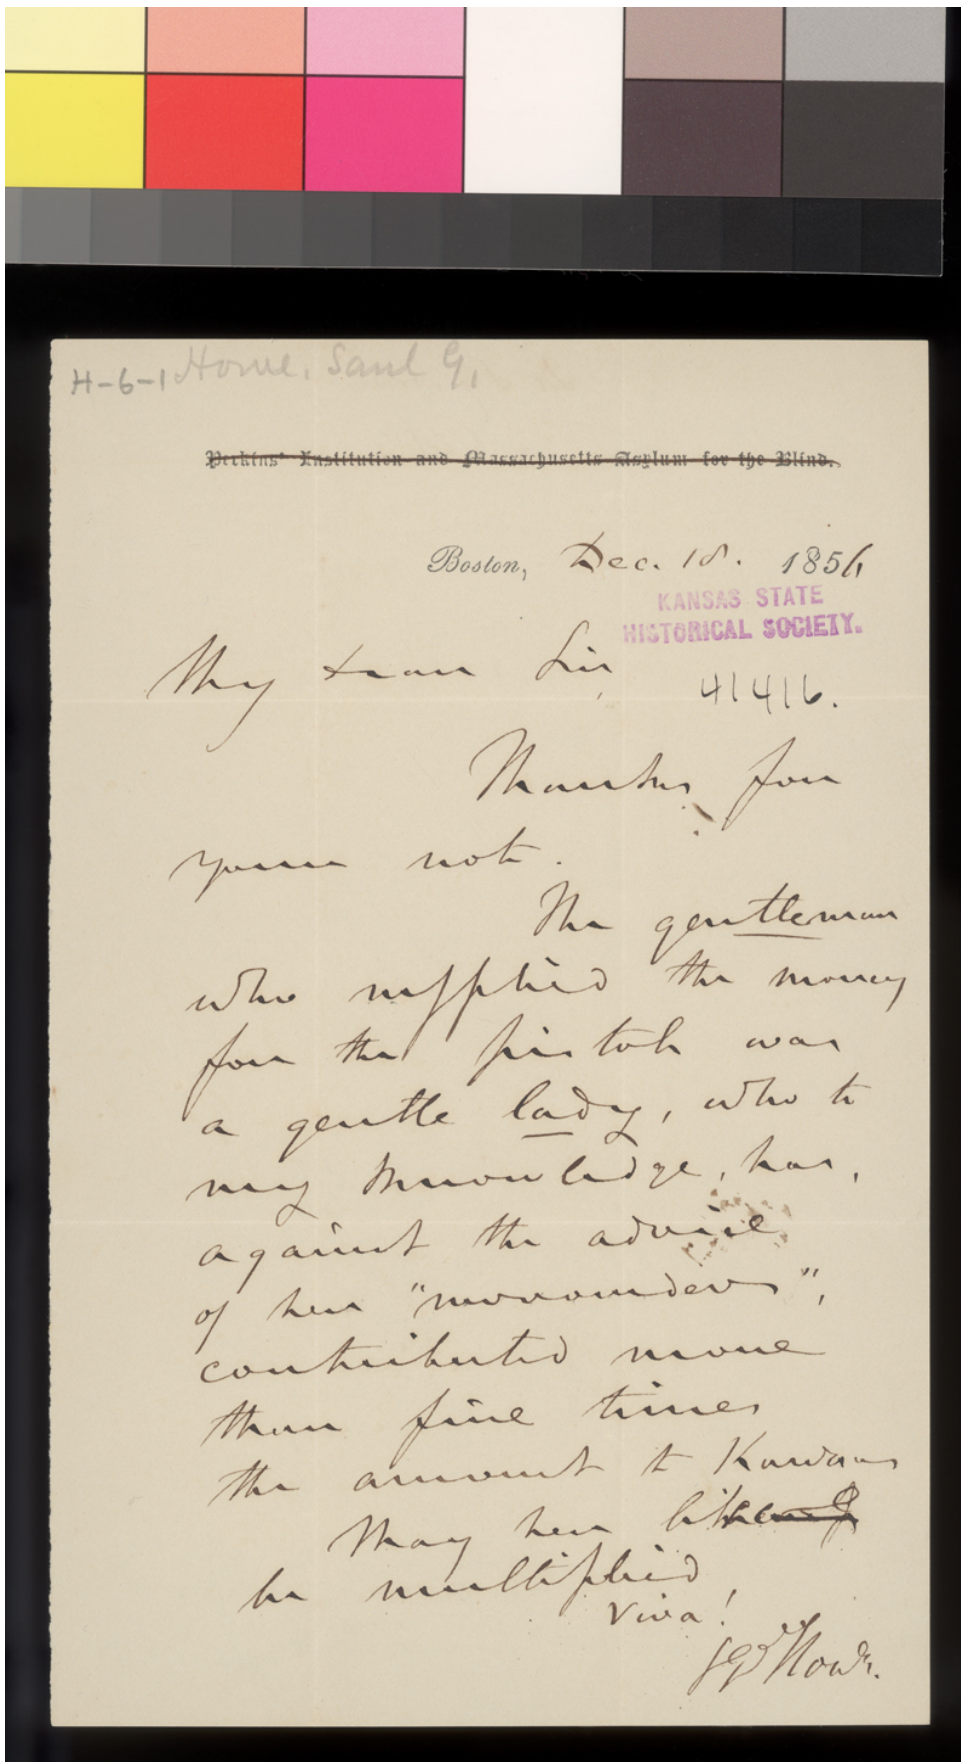 H-6-1 Howe, Saml G.
Perkins' Institution and Massachusetts Asylum for the Blind.
Boston, Dec. 18. 1856
KANSAS STATE
HISTORICAL SOCIETY.
My dear Sir,
41416.
Thanks for
your note.
The gentleman
who supplied the money
for the pistols was
a gentle lady, who to
my knowledge, has,
against the advice
of her "surrounders",
contributed more
than five times
the amount to Kansas
May her like
be multiplied
Viva!
S G Howe.